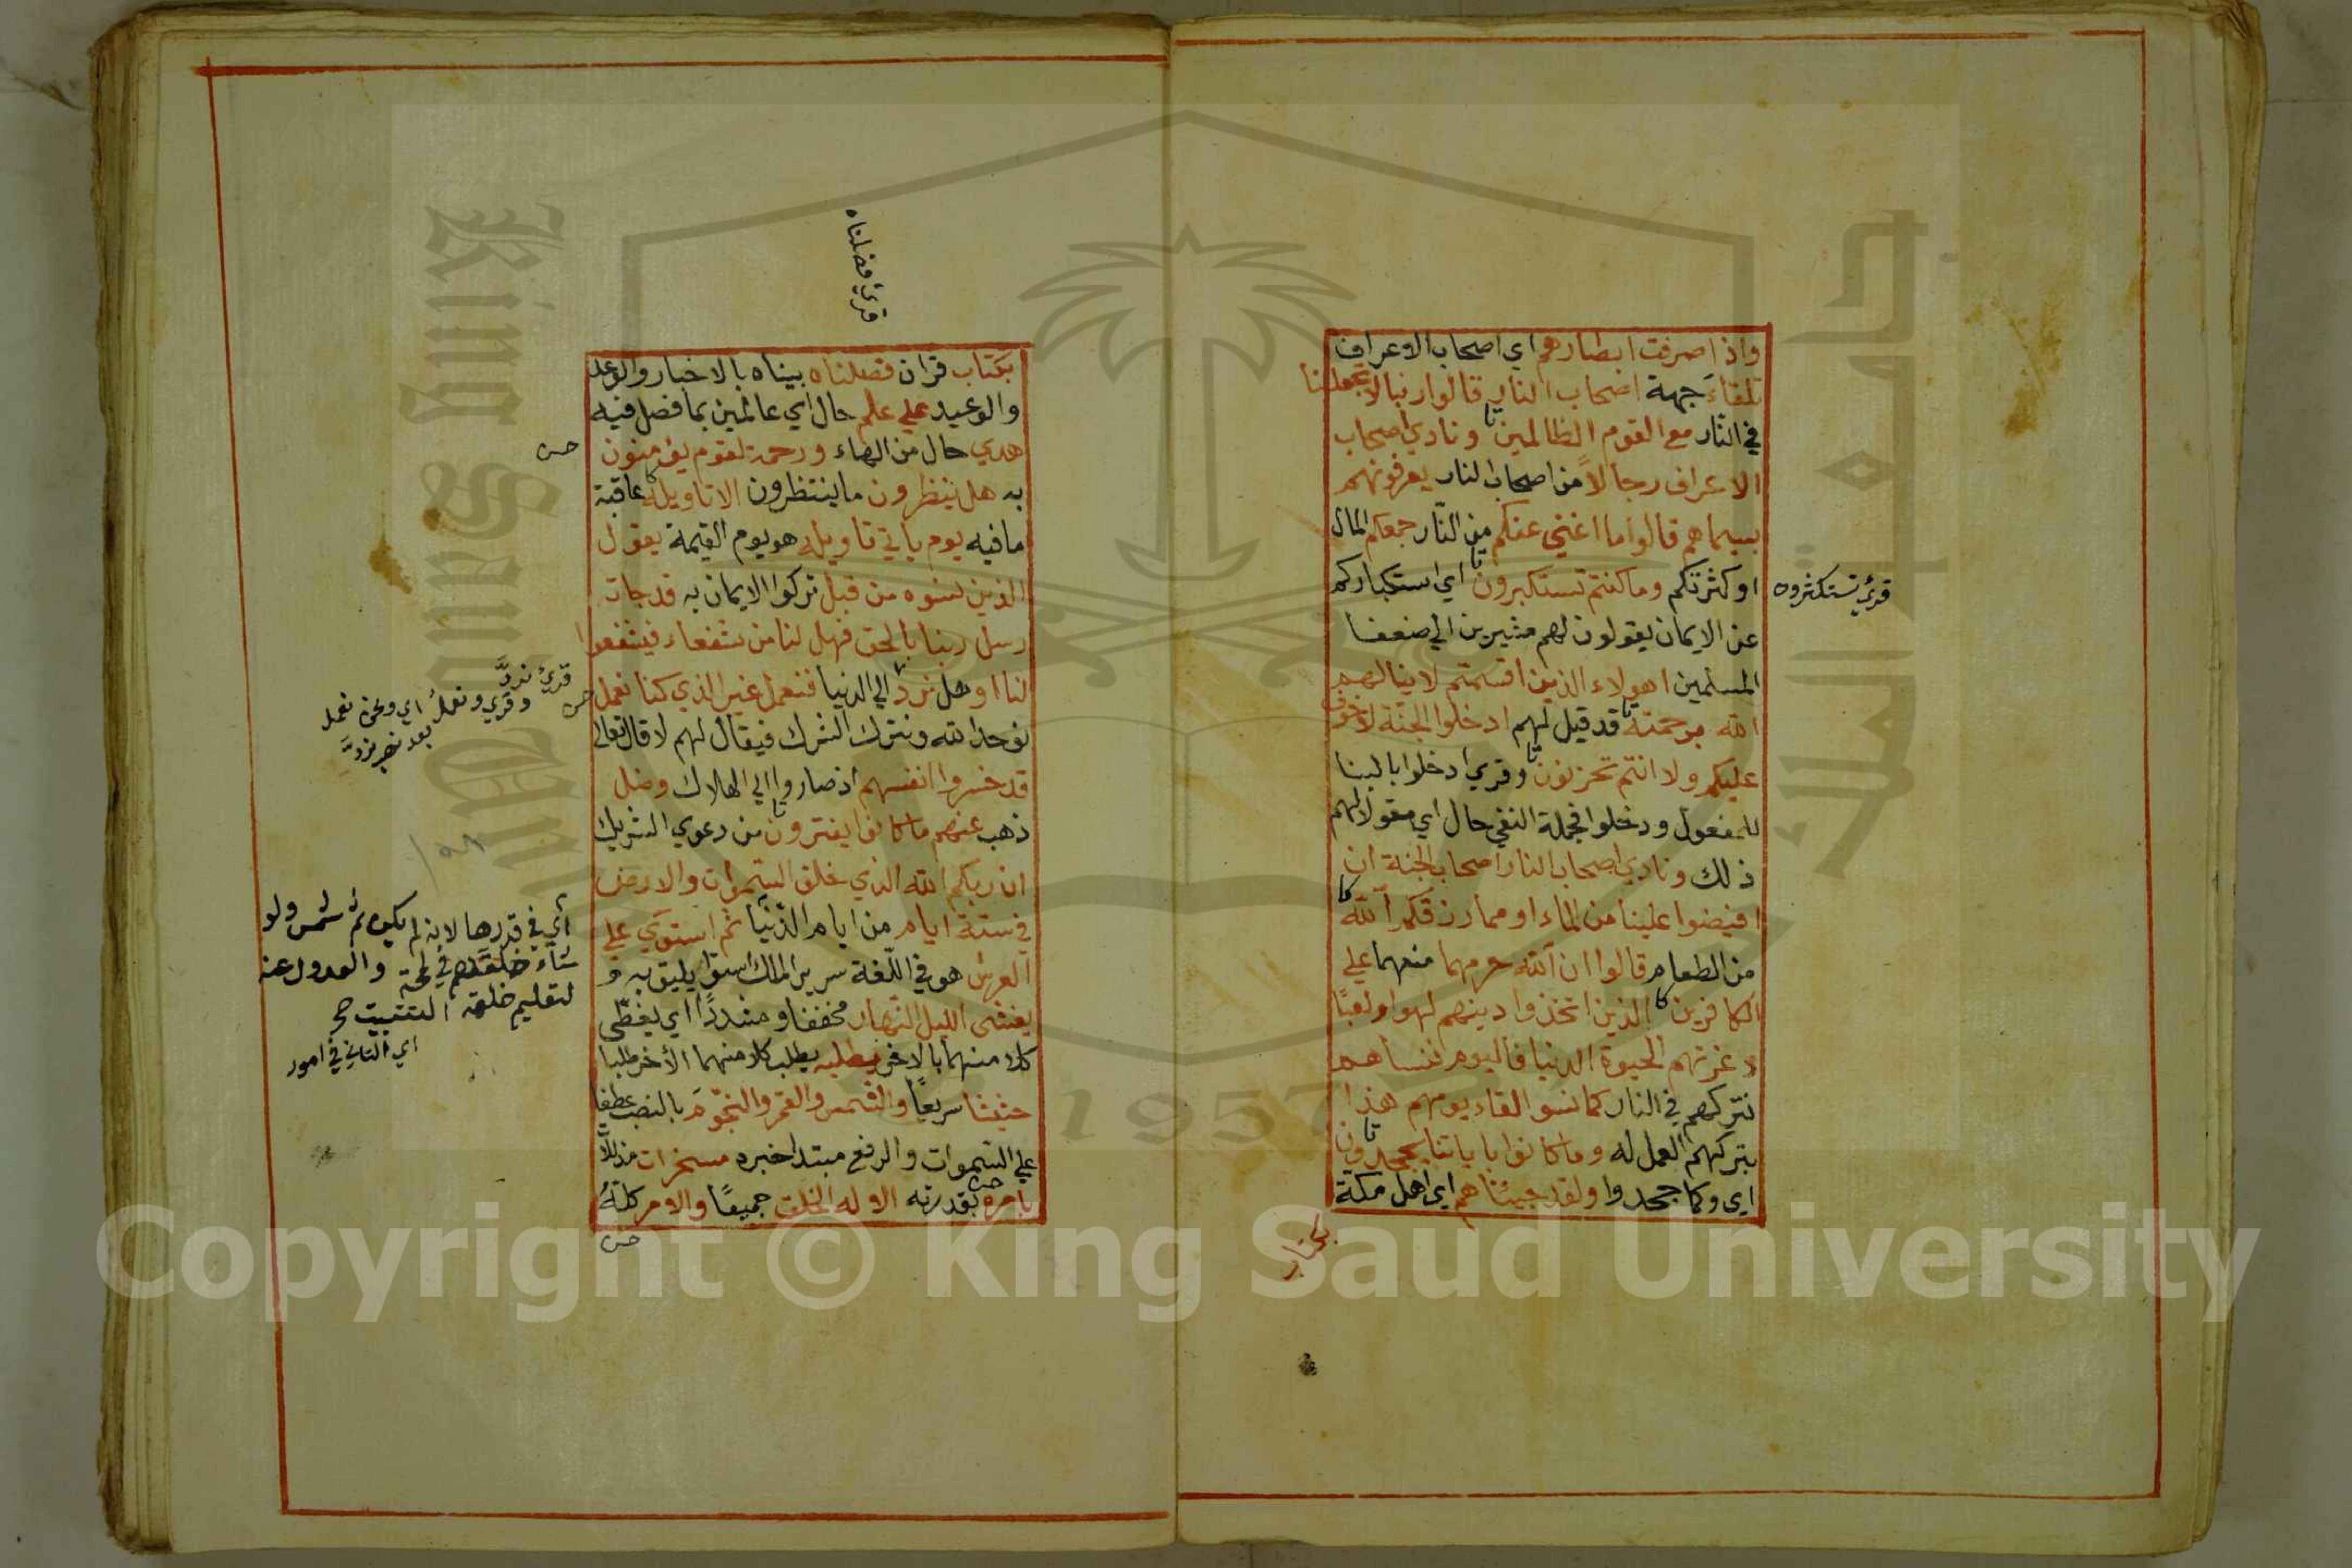 واذا صرفت ابصارهم اي اصحاب الاعراف
تلقاء جهة اصحاب النار قالوا ربنا لا تجعلنا
في النار مع القوم الظالمين ونادي اصحاب
الاعراف رجالاً من اصحاب النار يعرفونهم
بسيماهم قالوا ما اغني عنكم من النّار جمعكم المال
او كثرتكم وما كنتم تستكبرون اي استكباركم
قرئ تستكثرون
عن الايمان يقولون لهم مشيرين الي ضعفا
المسلمين اهولاء الذين اقسمتم لا ينالهم
الله برحمته قد قيل لهم ادخلوا الجنّة لا خوف
عليكم ولا انتم تحزنون وقري ادخلوا بالبنا
للمفعول ودخلوا فجملة النفي حال اي مقولا لهم
ذلك ونادي اصحاب النار اصحاب الجنة ان
افيضوا علينا من الماء او مما رزقكم الله
من الطعام قالوا ان الله حرمهما منعهما علي
الكافرين الذين اتخذوا دينهم لهوا ولعبًا
وغرتهم الحيوة الدنيا فاليوم ننساهم
نتركهم في النار كما نسوا لقاء يومهم هذا
بتركهم العمل له وما كانوا باياتنا يجحدون
اي وكما جحدوا ولقد جيئناهم اي اهل مكة
بكتاب
قرئ فضلناه
بكتاب قران فصلناه بيناه بالاخبار والوعد
والوعيد علي علم حال اي عالمين بما فصل فيه
هدي حال من الهاء ورحمة لقوم يؤمنون
به هل ينظرون ما ينتظرون الا تاويله عاقبة
ما فيه يوم ياتي تاويله هو يوم القيمة يقول
الذين نسوه من قبل تركوا الايمان به قد جات
رسل ربنا بالحق فهل لنا من شفعاء فيشفعوا
لنا او هل نرد الي الدنيا فنعمل غير الذي كنا نعمل
قرئ نردَّ
وقري ونعملُ اي ونحن نعمل
نوحد الله ونترك الشرك فيقال لهم لا قال تعالي
قد خسروا انفسهم اذ صاروا الي الهلاك وضل
ذهب عنهم ما كانوا يفترون من دعوي الشريك
ان ربكم الله الذي خلق السّموات والارض
في ستة ايام من ايام الدّنيا ثم استوي علي
العرش هو في اللّغة سرير الملك استوا يليق به
يغشى الليل النّهار مخففا ومشددًا اي يغطّي
كلا منهما بالاخر يطلبه يطلب كل منهما الأخر طلبا
حثيثا سريعًا والشّمس والقمر والنّجوم بالنصب عطفا
علي السّموات والرفع مبتدا خبره مسخرات مذللاً
بامره بقدرته الا له الخلق جميعًا والامر كلّهُ
اي في قدرها لانه لم يكن ثم شمس ولو
شآء خلقهم في لمحة والعدول عنه
لتعليم خلقه التثبيت
اي التاني في امور
King Saud University
1957
Copyright © King Saud University